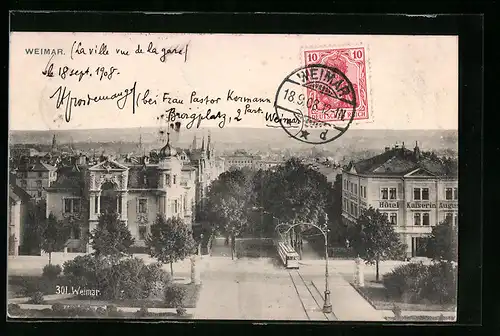 WEIMAR. (La ville vue de la gare)
le 18 sept. 1908.
(bei Frau Pastor Kormann
Burgplatz, 2 Part.
Weimar
10 10
WEIMAR
18.9.08.
* d
Hôtel Kaiserin Augusta
301. Weimar.